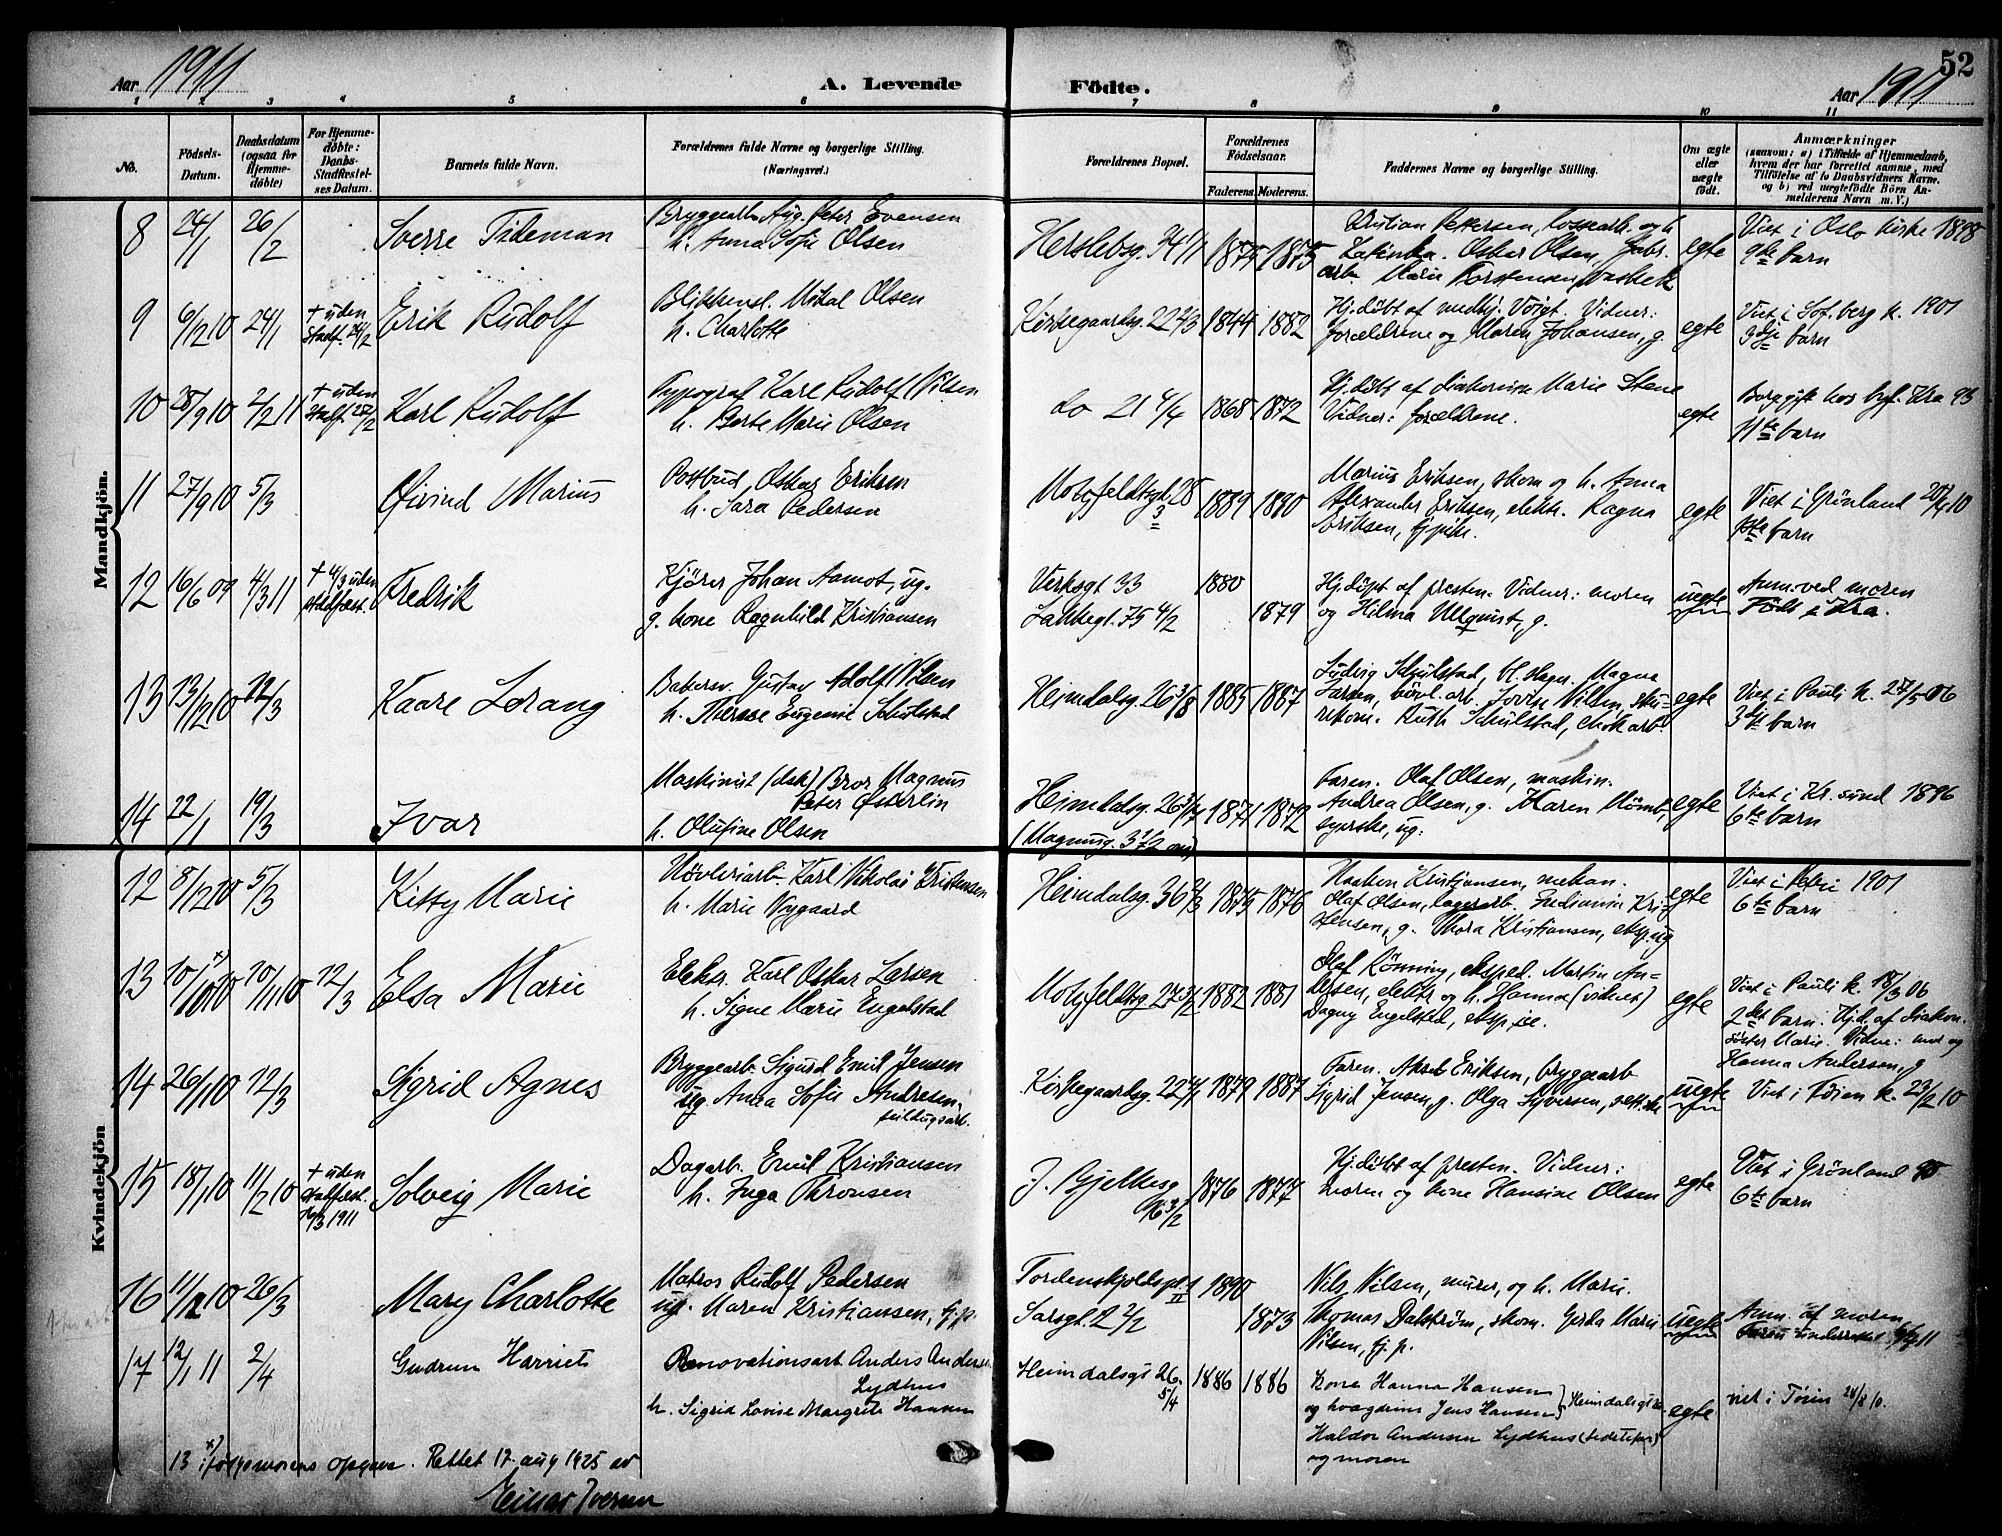 Aar 1911
A. Levende Fødte.
Aar 1911
52
1 2 3 4 5 6 7 8 9 10 11
No.
Fødsels-Datum.
Daabsdatum (ogsaa for Hjemmedøbte)
For Hjemmedøbte: Daabs-Stadfæstelses Datum.
Barnets fulde Navn.
Forældrenes fulde Navne og borgerlige Stilling.
(Næringsvei.)
Forældrenes Bopæl.
Forældrenes Fødselsaar.
Faderens. Moderens.
Faddernes Navne og borgerlige Stilling.
Om ægte eller uægte født.
Anmærkninger
(saasom: a) i Tilfælde af Hjemmedaab, hvem der har forrettet samme, med Tilføielse af to Daabsvidners Navne. og b) ved uægtefødte Børn Anmelderens Navn m. V.)
Mandkjön.
8 24/1 26/2 Sverre Tideman
Bryggearb. Aug. Peter Evensen
h. Anna Sofie Olsen
Herslebsg. 34 1/1 1875 1875
Kristian Pettersen, h.
Katinka. Oskar Olsen, fabr.
arb. Marie Torstensen,
egte
Viet i Oslo kirke 1898
9de barn
9 6/12 10 24/1 + uden Stadf. 24/2 Erik Rudolf
Blikkensl. Mikal Olsen
h. Charlotte
Kirkegaardsg. 22 2/3 1844 1882
Hj.døbt af medhj. Voigt. Vidner:
forældrene og Maren Johansen, g.
egte
Viet i Sof.berg k. 1901
3dje barn
10 28/9 10 2/2 11 + uden Stadf. 27/2 Karl Rudolf
Typograf Karl Rudolf Nilsen
h. Berte Marie Olsen
do 21 4/4 1868 1872
Hj.døbt af diakonisse Marie Stene
Vidner: forældrene.
egte
Borggift hos byf. Kra 93
11te barn
11 27/9 10 5/3 Øivind Marius
Postbud Oskar Eriksen
h. Sara Pedersen
Motzfeldtsgd 28 3 1889 1890
Marius Eriksen, skom og h. Anna
Alexander Eriksen, elektr. Ragna
Eriksen, tj.pike.
egte
Viet i Grönland 20/4 10
1ste barn
12 16/6 09 4/3 11 + 4/3 uden stadfæst. Fredrik
Kjører Johan Aamot, ug.
g. kone Ragnhild Kristiansen
Verksgt 33 1880
Lakkegt. 75 4/2 1879
Hj.döpt af presten. Vidner: moren
og Hilma Ullquist, g.
uegte
Anm. ved moren
Födt i Kra.
13 13/12 10 12/3 Kaare Lorang
Bakersv. Gustav Adolf Nilsen
h. Therese Eugenie Schulstad
Heimdalsg. 26 3/8 1885 1887
Ludvig Schulstad, bl.slager. Magna
Larsen, hövl.arb. Lovise Nilsen, sku-
rekone. Ruth Schulstad, chok arb.
egte
Viet i Pauli k. 27/5 06
3dje barn
14 22/1 19/3 Ivar
Maskinist (dsk) Bror Magnus
Peter Østerlin
h. Olufine Olsen
Heimdalsg. 26 3/7 1871 1872
(Magnusg. 3 1/2)
Faren. Olaf Olsen, maskin.
Andrea Olsen, g. Karen
syerske, ug.
egte
Viet i Kr.sund 1896
6te barn
Kvindekjön
12 8/12 10 5/3 Kitty Marie
Høvleriarb. Karl Nikolai Kristensen
h. Marie Nygaard
Heimdalsg. 36 2/3 1875 1876
Haakon Kristiansen, mekan.
Olaf Olsen, lagerarb. Kri-
stensen, g. Thora Kristiansen, eksp. ug
egte
Viet i Petri 1901
6te barn
13 10/10 10 x) 10/11 10 12/3 Elsa Marie
Elektr. Karl Oskar Larsen
h. Signe Marie Engelstad
Motzfeldtsg. 27 3/2 1882 1881
Olaf Rønning, eksped. Martin An-
dersen, elektr og h. Hanna (vidnet)
Dagny Engelsted, eksp.ice.
egte
Viet i Pauli k. 18/3 06
2det barn. Hj.d. af diakon.
søster Marie. Vidne: mor og
Hanna Andersen, g
14 26/1 10 12/3 Sigrid Agnes
Bryggearb. Sigurd Emil Jensen
ug. Anna Sofie Andresen,
seildugsarb.
Kirkegaardsg. 22 4/1 1879 1887
Faren. Aksel Eriksen, bryggearb
Sigrid Jensen, g. Olga Syversen,
uegte
Viet i Tøien k. 23/2 10
15 18/1 10 11/2 10 + uden stadfæst. 1911 Solveig Marie
Dagarb. Emil Kristiansen
h. Inga Thronsen
J. Bjelkesg 16 3/2 1876 1877
Hj.döbt af presten. Vidner:
moren og kone Hansine Olsen
egte
Viet i Grönland 95
6te barn
16 11/12 10 26/3 Mary Charlotte
Matros Rudolf Pedersen
ug. Maren Kristiansen, tj.p.
Tordenskjoldspl 1 II 1890
Sarsgt. 2 2/2 1873
Nils Nilsen, murer, og h. Marie.
Thomas Dalstrøm, skom. Gerda Marie
Nilsen, tj.p.
uegte
Anm. af moren
Faren underrettet 11
17 12/1 11 2/4 Gudrun Harriet
Renovationsarb Anders Andersen
Lydhus
h. Sigrid Lovise Margrete Hansen
Heimdalsgt 26. 5/4 1886 1886
Kone Hanna Hansen
og Jens Hansen } Heimdalsgt
Haldor Andersen Lydhus
og moren
egte
viet i Tøien 28/8 10.
13 x) ifølge morens opgave. Rettet 17 aug 1925 av
Einar Iversen